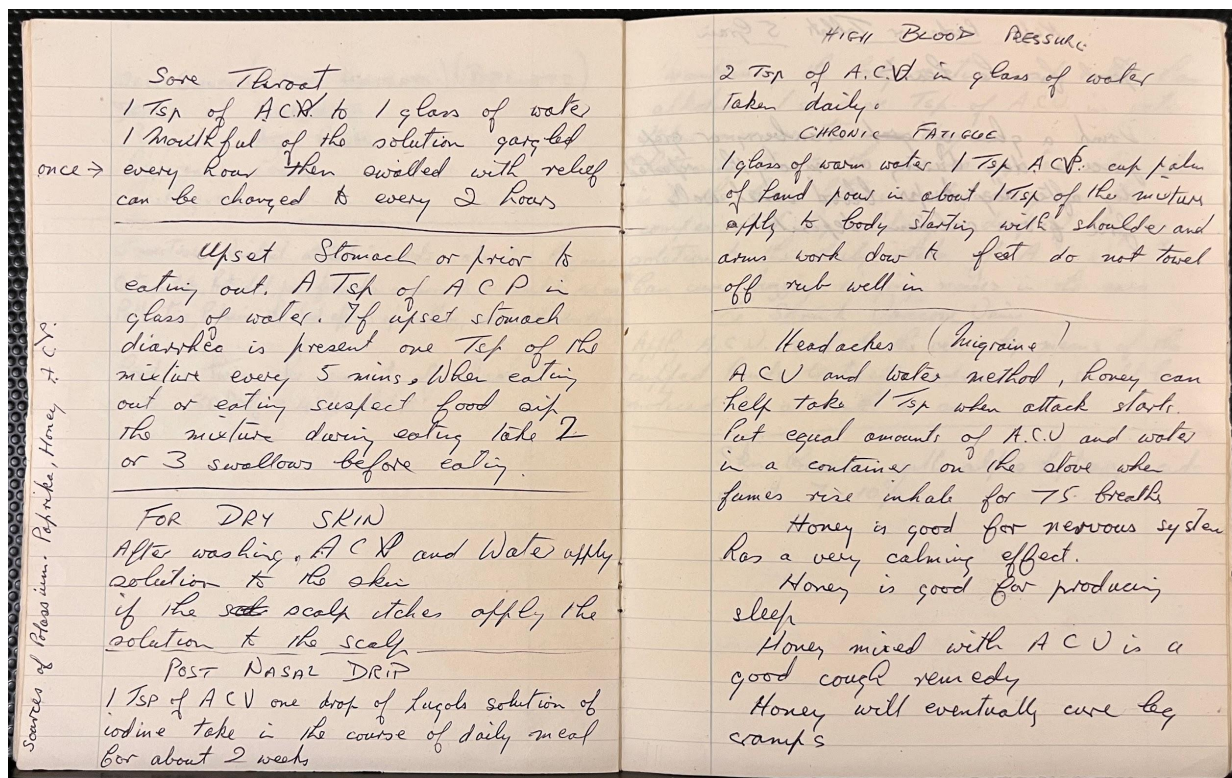 Sore Throat
1 Tsp of ACV. to 1 glass of water
1 Mouthful of the solution gargled
once → every hour then swalled with relief
can be changed to every 2 hours
Upset Stomach or prior to
eating out. A Tsp of A C P in
glass of water. If upset stomach
diarrhea is present one Tsp of the
mixture every 5 mins. When eating
out or eating suspect food sip
the mixture during eating take 2
or 3 swallows before eating.
FOR DRY SKIN
After washing. A C V and Water apply
solution to the skin
if the scalp itches apply the
solution to the scalp
POST NASAL DRIP
1 Tsp of ACV one drop of Lugols solution of
iodine take in the course of daily meal
for about 2 weeks
sources of Potassium. Paprika, Honey A.C.P.
HIGH BLOOD PRESSURE
2 Tsp of A.C.V in glass of water
taken daily.
CHRONIC FATIGUE
1 glass of warm water 1 Tsp ACV. cup palm
of hand pour in about 1 Tsp of the mixture
apply to body starting with shoulder and
arms work dow to feet do not towel
off rub well in
Headaches (Migraine)
A C V and Water method, honey can
help take 1 Tsp when attack starts.
Put equal amounts of A.C.V and water
in a container on the stove when
fumes rise inhale for 75 breaths
Honey is good for nervous system
has a very calming effect.
Honey is good for producing
sleep
Honey mixed with A C V is a
good cough remedy
Honey will eventually cure leg
cramps